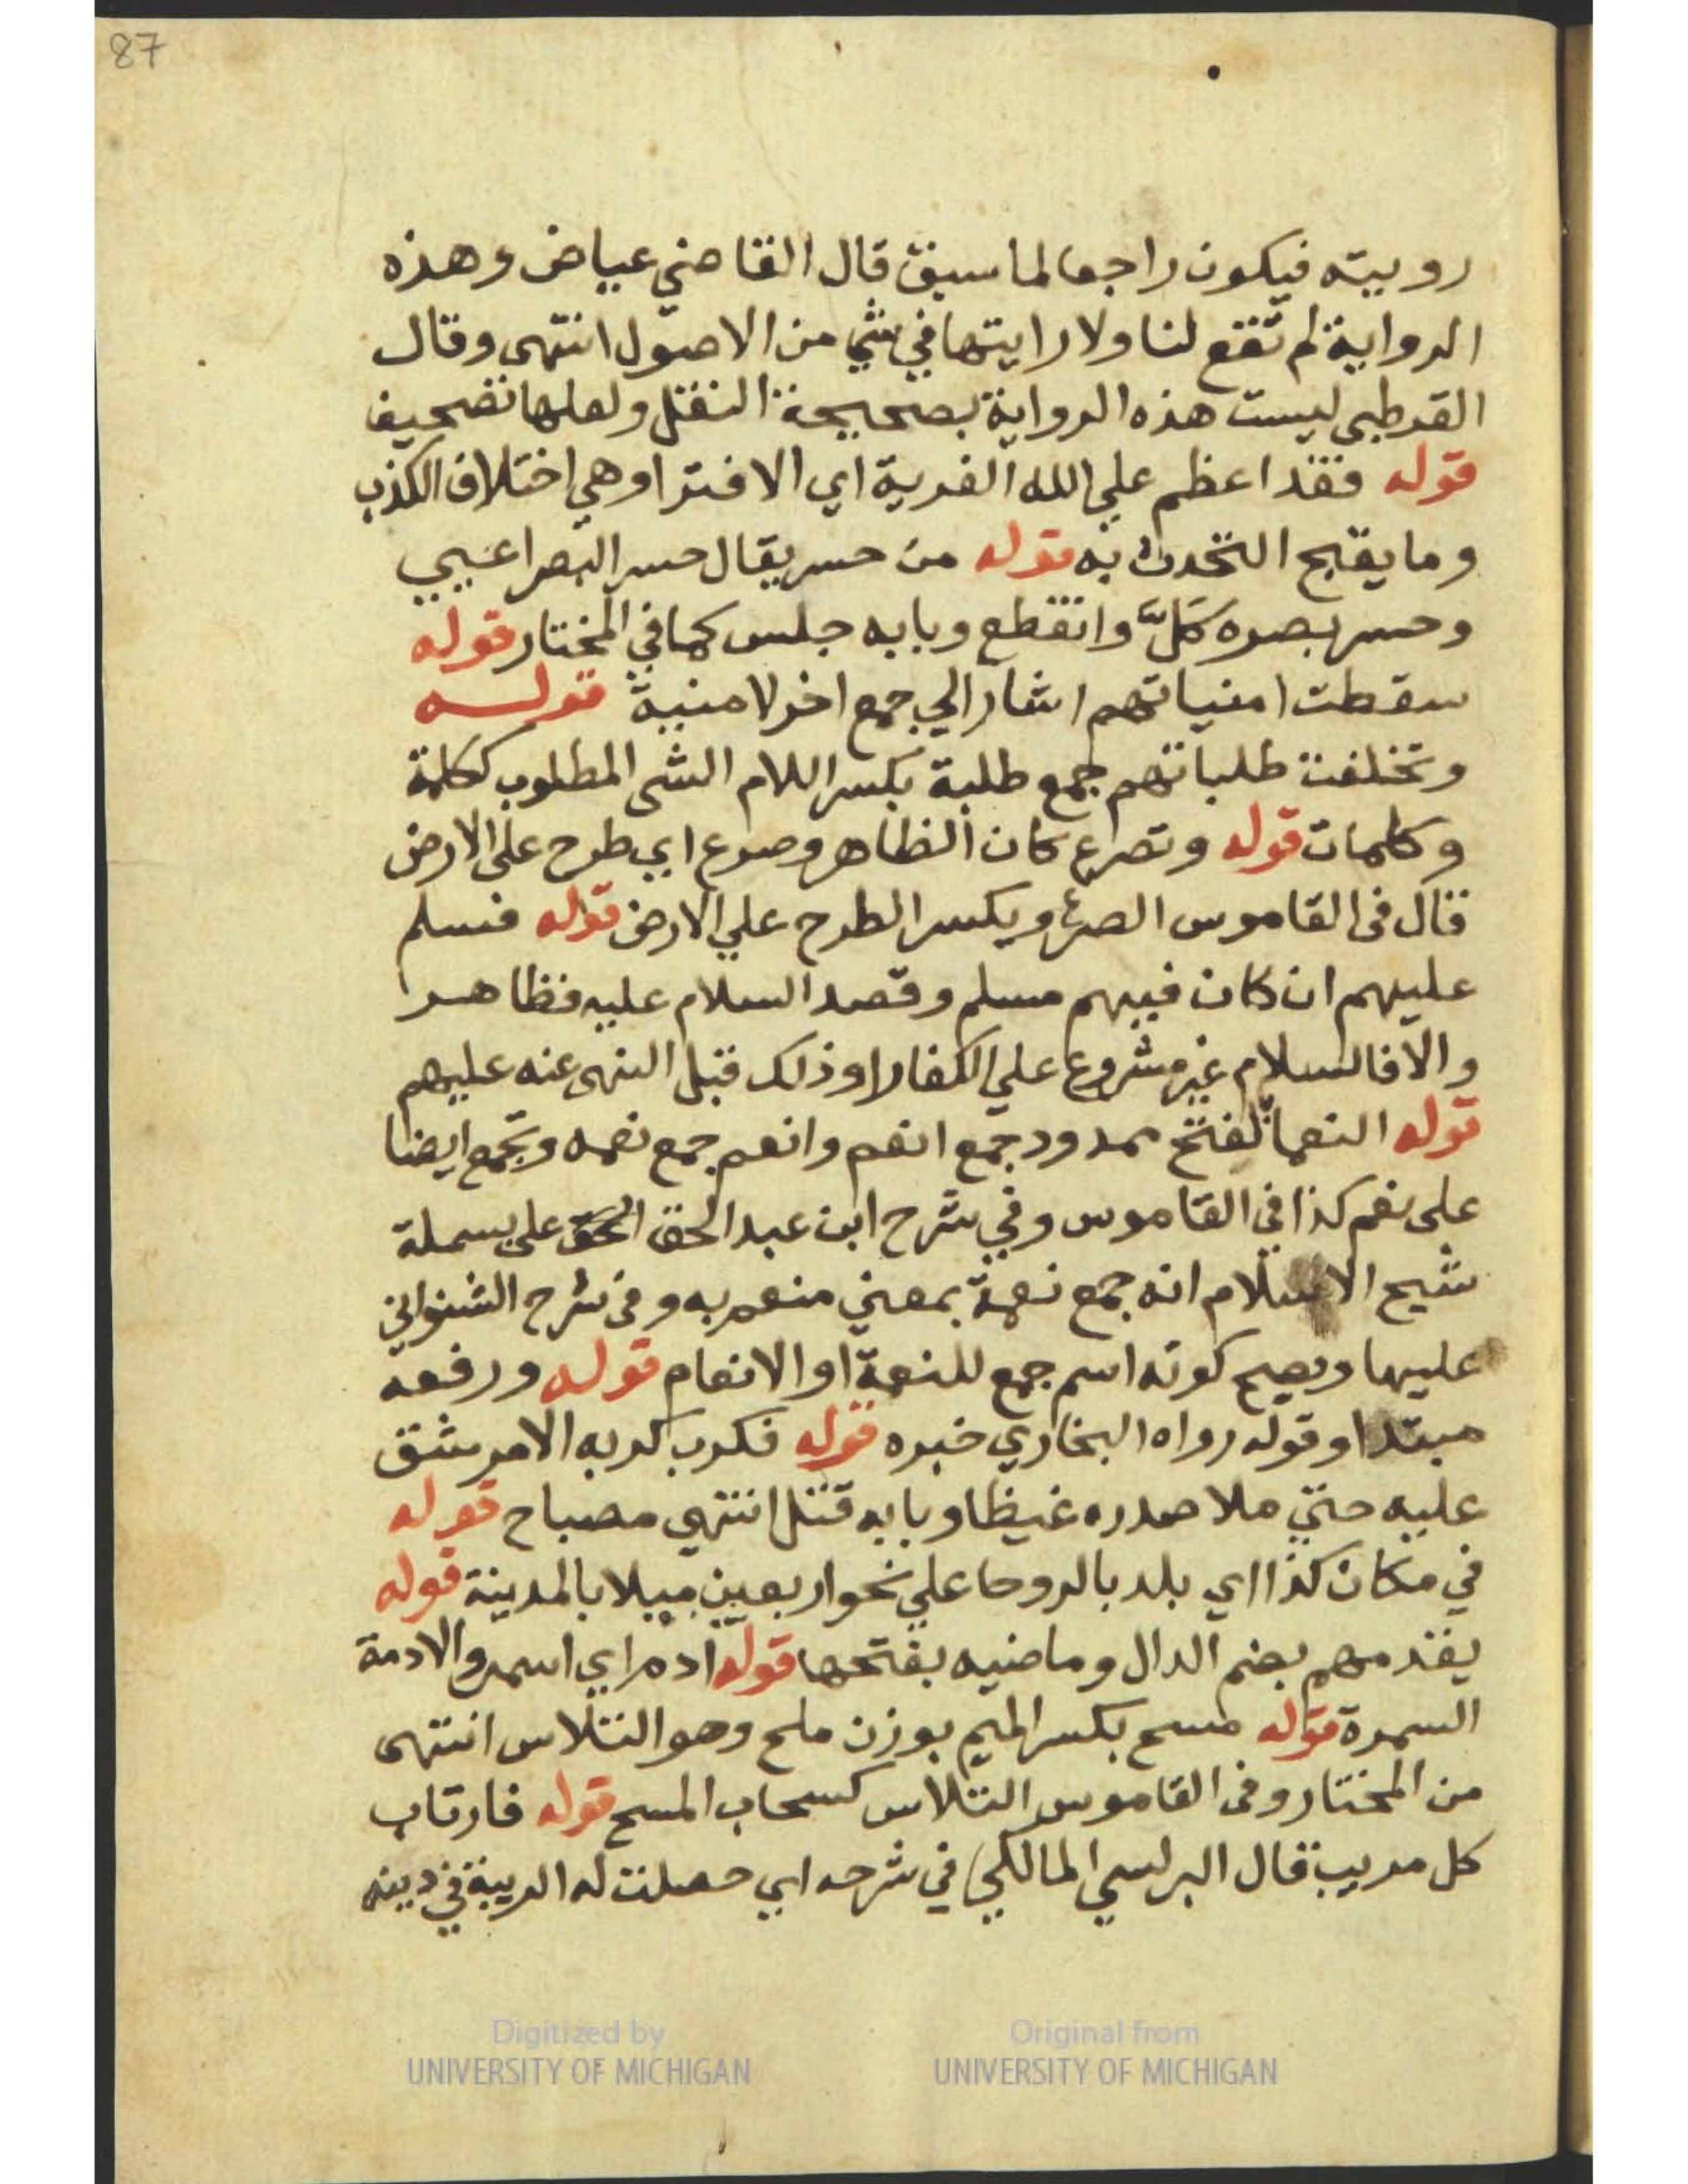 87
رويته فيكون راجعا لما سبق قال القاضي عياض وهذه
الرواية لم تقع لنا ولا رايتها في شي من الاصول انتهى وقال
القرطبي ليست هذه الرواية بصحيحة النقل ولعلها تصحيف
قوله فقد اعظم علي الله الفرية اي الافترا وهي اختلاق الكذب
وما يقبح التحدث به قوله من حسر يقال حسر البصر اعيي
وحسر بصره كَلَّ وانقطع وبابه جلس كما في المختار قوله
سقطت امنياتهم اشار الي جمع اخر لامنية قوله
وتخلفت طلباتهم جمع طلبة بكسر اللام الشى المطلوب ككلمة
وكلمات قوله وتصرع كان الظاهر وصرع اي طرح على الارض
قال فى القاموس الصرع ويكسر الطرح علي الارض قوله فسلم
عليهم ان كان فيهم مسلم وقصد السلام عليه فظاهر
والا فالسلام غير مشروع علي الكفار او ذلك قبل النهى عنه عليهم
قوله النعما بفتح ممدود جمع انعم وانعم جمع نعمه وتجمع ايضا
على نعم كذا في القاموس وفي شرح ابن عبد الحق على بسملة
شيخ الاسلام انه جمع نعمة بمعني منعم به وفى شرح الشنواني
عليها ويصح كونه اسم جمع للنعمة او الانعام قوله ورفعه
مبتدا وقوله رواه البخاري خبره قوله فكرب كربه الامر شق
عليه حتي ملا صدره غيظا وبابه قتل انتهي مصباح قوله
في مكان كذا اي بلد بالروحا علي نحو اربعين ميلا بالمدينة قوله
يقدمهم بضم الدال وماضيه بفتحها قوله ادم اي اسمر والادمة
السمرة قوله مسح بكسر الميم بوزن ملح وهو التلاس انتهى
من المختار وفى القاموس التلاس كسحاب المسح قوله فارتاب
كل مريب قال البرلسي المالكي في شرحه اي حصلت له الريبة في دينه
Digitized by
UNIVERSITY OF MICHIGAN
Original from
UNIVERSITY OF MICHIGAN